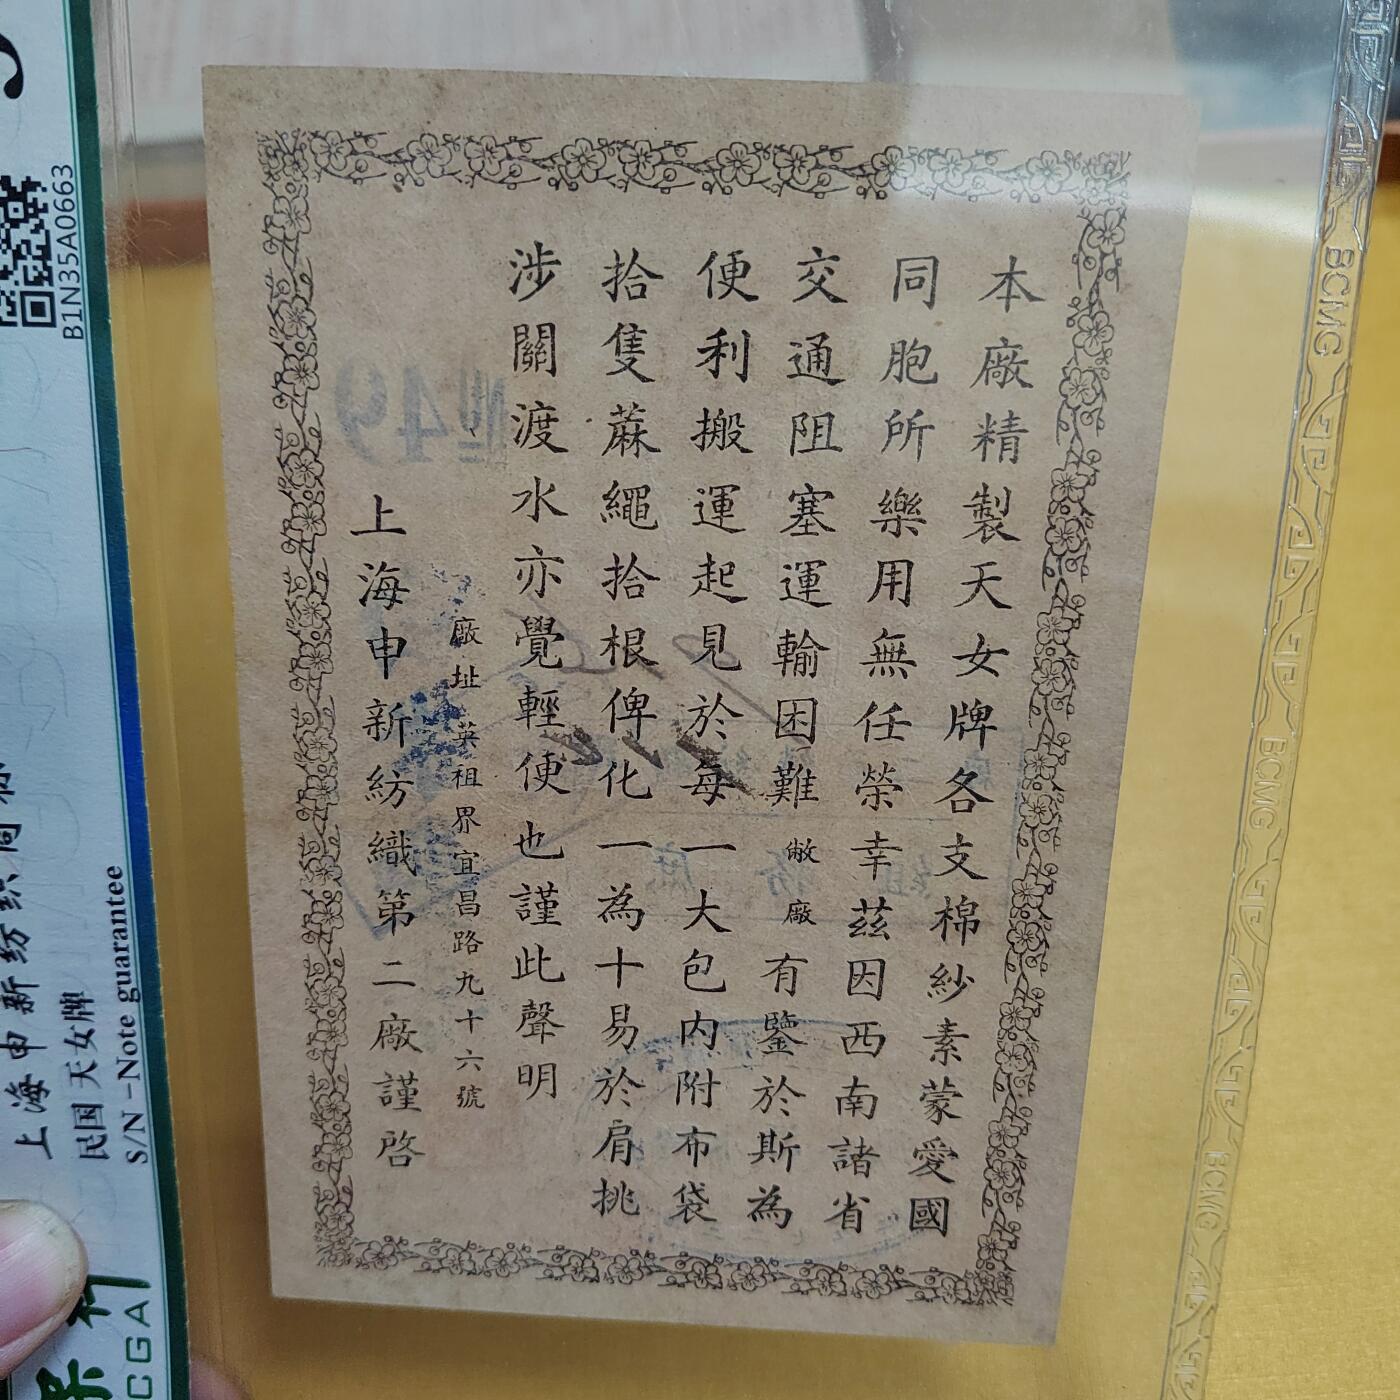 本廠精製天女牌各支棉紗素蒙愛國
同胞所樂用無任榮幸茲因西南諸省
交通阻塞運輸困難敝廠有鑒於斯為
便利搬運起見於每一大包内附布袋
拾隻蔴繩拾根俾化一為十易於肩挑
涉關渡水亦覺輕便也謹此聲明
廠址英租界宜昌路九十六號
上海申新紡織第二廠謹啓
49
B1N35A0663
上海申新纺织
民国 天女牌
S/N -Note guarantee
CGA
BCMG
BCMG
BCMG